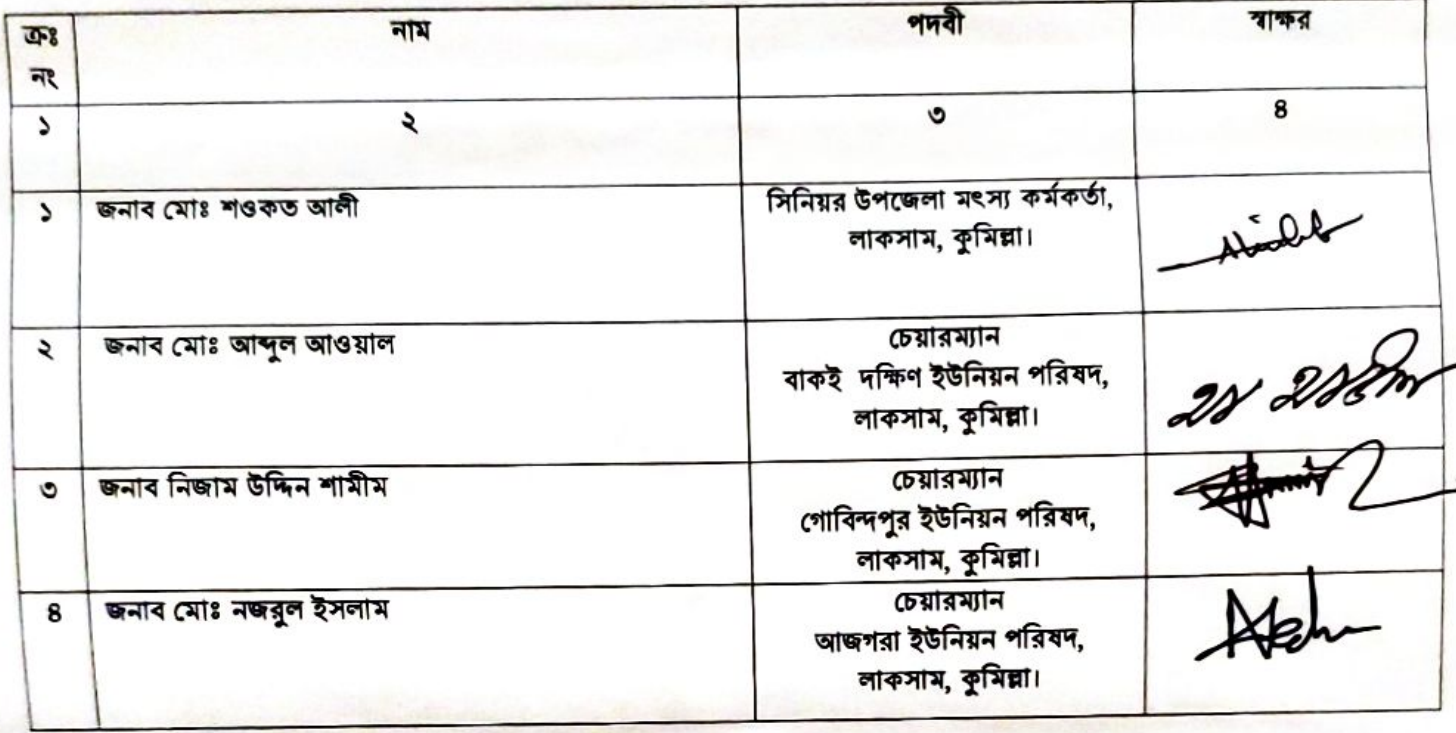 ক্রঃ নং নাম পদবী স্বাক্ষর
১ ২ ৩ ৪
১ জনাব মোঃ শওকত আলী সিনিয়র উপজেলা মৎস্য কর্মকর্তা,
লাকসাম, কুমিল্লা।
২ জনাব মোঃ আব্দুল আওয়াল চেয়ারম্যান
বাকই দক্ষিণ ইউনিয়ন পরিষদ,
লাকসাম, কুমিল্লা।
৩ জনাব নিজাম উদ্দিন শামীম চেয়ারম্যান
গোবিন্দপুর ইউনিয়ন পরিষদ,
লাকসাম, কুমিল্লা।
৪ জনাব মোঃ নজরুল ইসলাম চেয়ারম্যান
আজগরা ইউনিয়ন পরিষদ,
লাকসাম, কুমিল্লা।